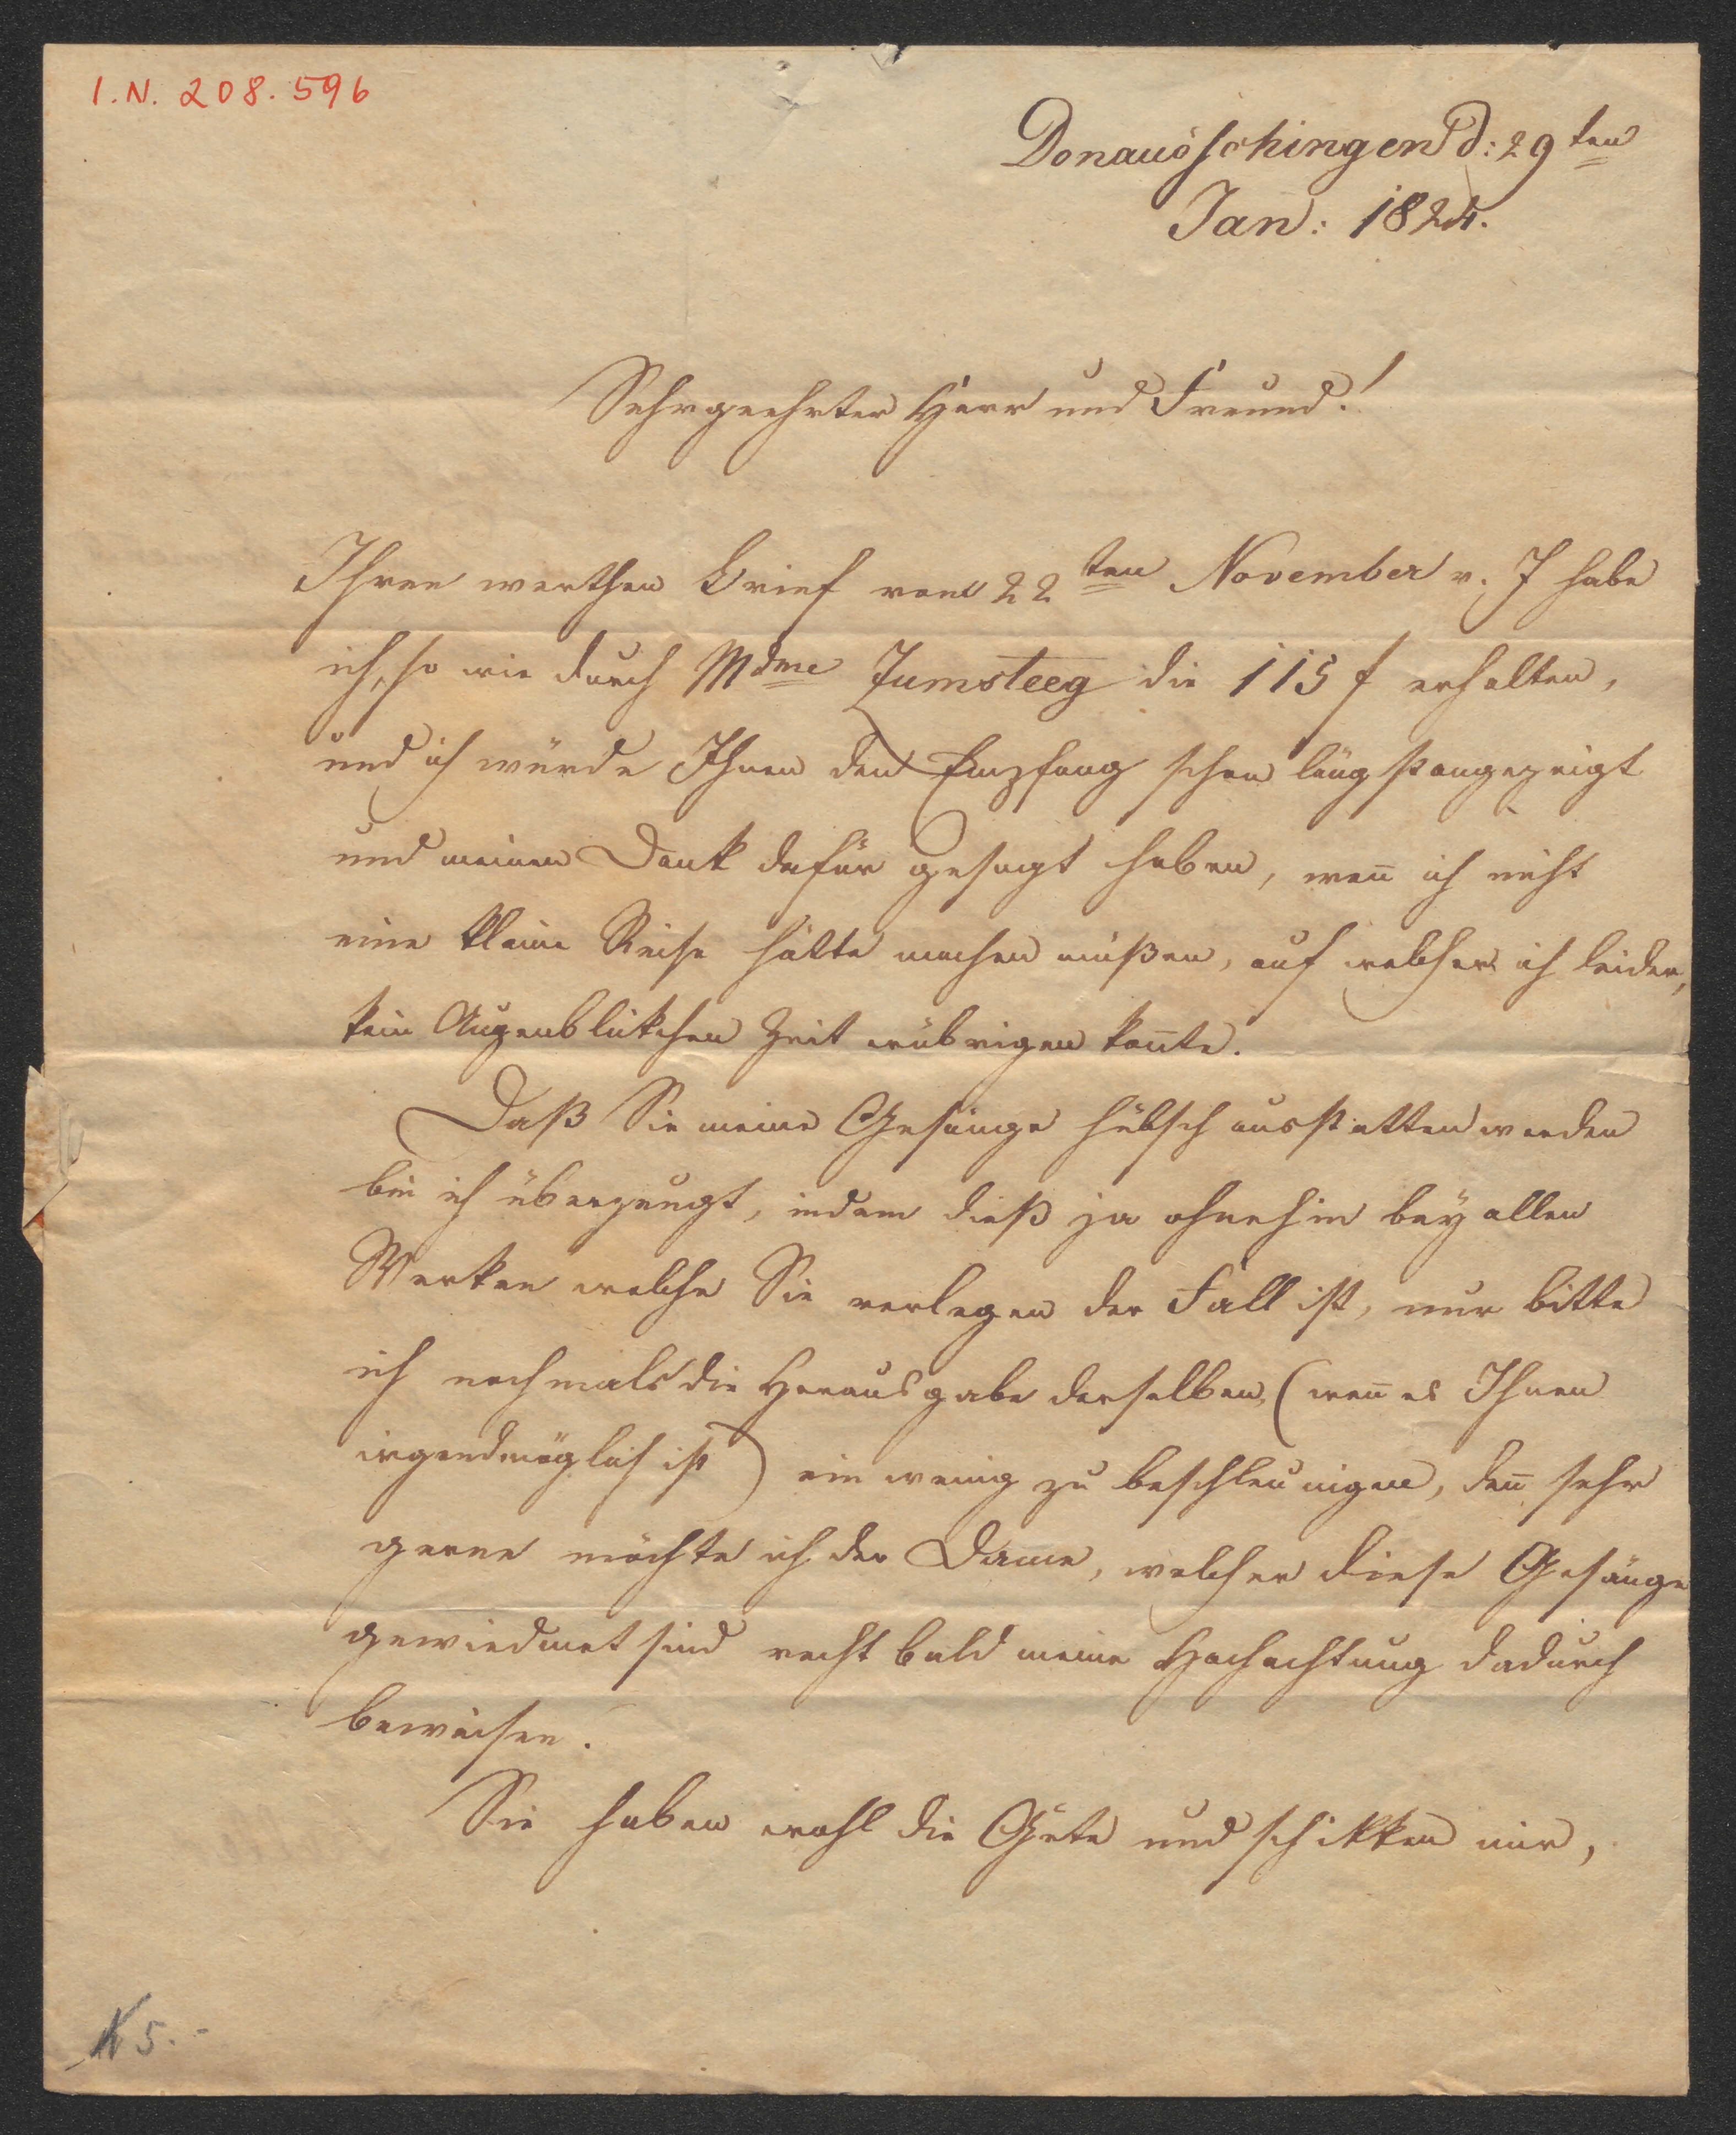 I.N. 208.596
Donauöschingen d: 29ten
Jan: 1824.
Sehrgeehrter Herr und Freund!
Ihren werthen Brief vom 22ten November v. J habe
ich, so wie durch Mdme Zumsteeg die 115 f erhalten,
und ich würde Ihnen den Empfang schon längst angezeigt
und meinen Dank dafür gesagt haben, wen̄ ich nicht
eine kleine Reise hätte machen müßen, auf welcher ich leider,
kein Augenblikchen Zeit erübrigen kon̄te.
Daß Sie meine Gesänge hübsch ausstatten werden
bin ich überzeugt, indem dieß ja ohnehin bey allen
Werken welche Sie verlegen der Fall ist, nur bitte
ich nochmals die Herausgabe derselben, (wen̄ es Ihnen
irgendmöglich ist) ein wenig zu beschleunigen, den̄ sehr
gerne möchte ich der Dame, welcher diese Gesänge
gewiedmet sind recht bald meine Hochachtung dadurch
beweisen.
Sie haben wohl die Güte und schikken mir,
K 5.-